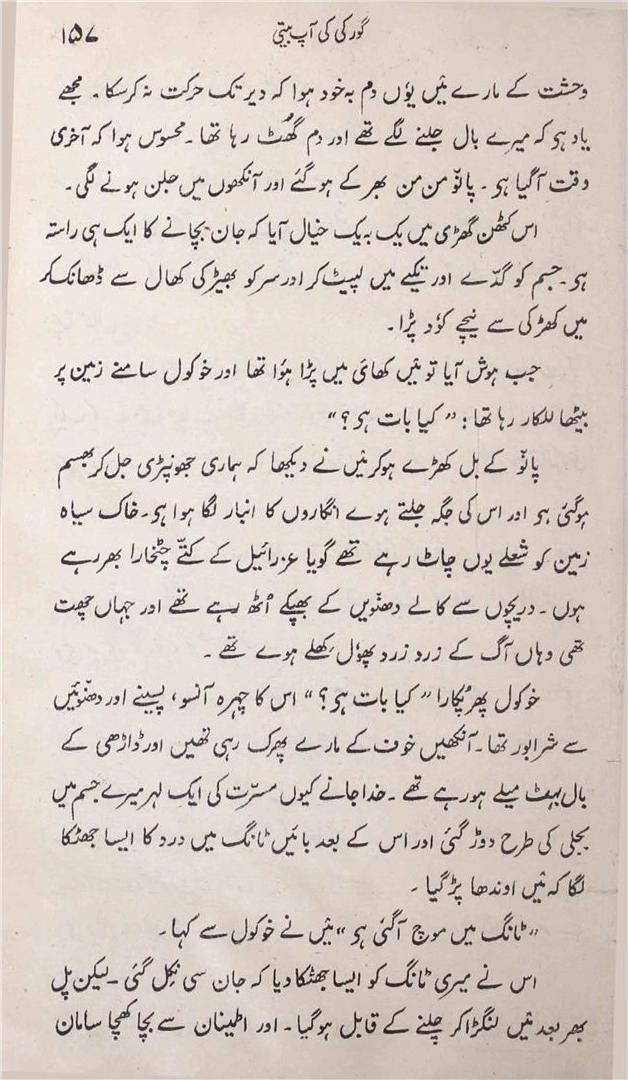 گورکی کی آپ بیتی ۱۵۷
وحشت کے مارے مَیں یوٗں دم بہ خود ہوا کہ دیر تک حرکت نہ کر سکا۔ مجھے
یاد ہو کہ میرے بال جلنے لگے تھے اور دم گھُٹ رہا تھا۔ محسوس ہوا کہ آخری
وقت آگیا ہو۔ پانو من من بھر کے ہو گئے اور آنکھوں میں جلن ہونے لگی۔
اس کٹھن گھڑی میں یک بہ یک خیال آیا کہ جان بچانے کا ایک ہی راستہ
ہو۔ جسم کو گدّے اور تکیے میں لپیٹ کر اور سر کو بھیڑ کی کھال سے ڈھانک کر
میں کھڑکی سے نیچے کوٗد پڑا۔
جب ہوش آیا تو مَیں کھائی میں پڑا ہوُا تھا اور خوکول سامنے زمین پر
بیٹھا للکار رہا تھا: ”کیا بات ہو؟“
پانو کے بل کھڑے ہو کر مَیں نے دیکھا کہ ہماری جھونپڑی جل کر بھسم
ہو گئی ہو اور اس کی جگہ جلتے ہوے انگاروں کا انبار لگا ہوا ہو۔ خاک سیاہ
زمین کو شعلے یوں چاٹ رہے تھے گویا عزرائیل کے کتّے چٹخارا بھر رہے
ہوں۔ دریچوں سے کالے دھنویں کے بھپکے اُٹھ رہے تھے اور جہاں چھت
تھی وہاں آگ کے زرد زرد پھوٗل کھِلے ہوے تھے۔
خوکول پھر پُکارا ”کیا بات ہو؟“ اس کا چہرہ آنسو، پسینے اور دھنوئیں
سے شرابور تھا۔ آنکھیں خوف کے مارے پھرک رہی تھیں اور ڈاڑھی کے
بال بہت میلے ہو رہے تھے۔ خدا جانے کیوں مسرّت کی ایک لہر میرے جسم میں
بجلی کی طرح دوڑ گئی اور اس کے بعد بائیں ٹانگ میں درد کا ایسا جھٹکا
لگا کہ مَیں اوندھا پڑ گیا۔
”ٹانگ میں موچ آگئی ہو“ مَیں نے خوکول سے کہا۔
اس نے میری ٹانگ کو ایسا جھٹکا دیا کہ جان سی نِکل گئی۔ لیکن پل
بھر بعد مَیں لنگڑا کر چلنے کے قابل ہو گیا۔ اور اطمینان سے بچا کھچا سامان